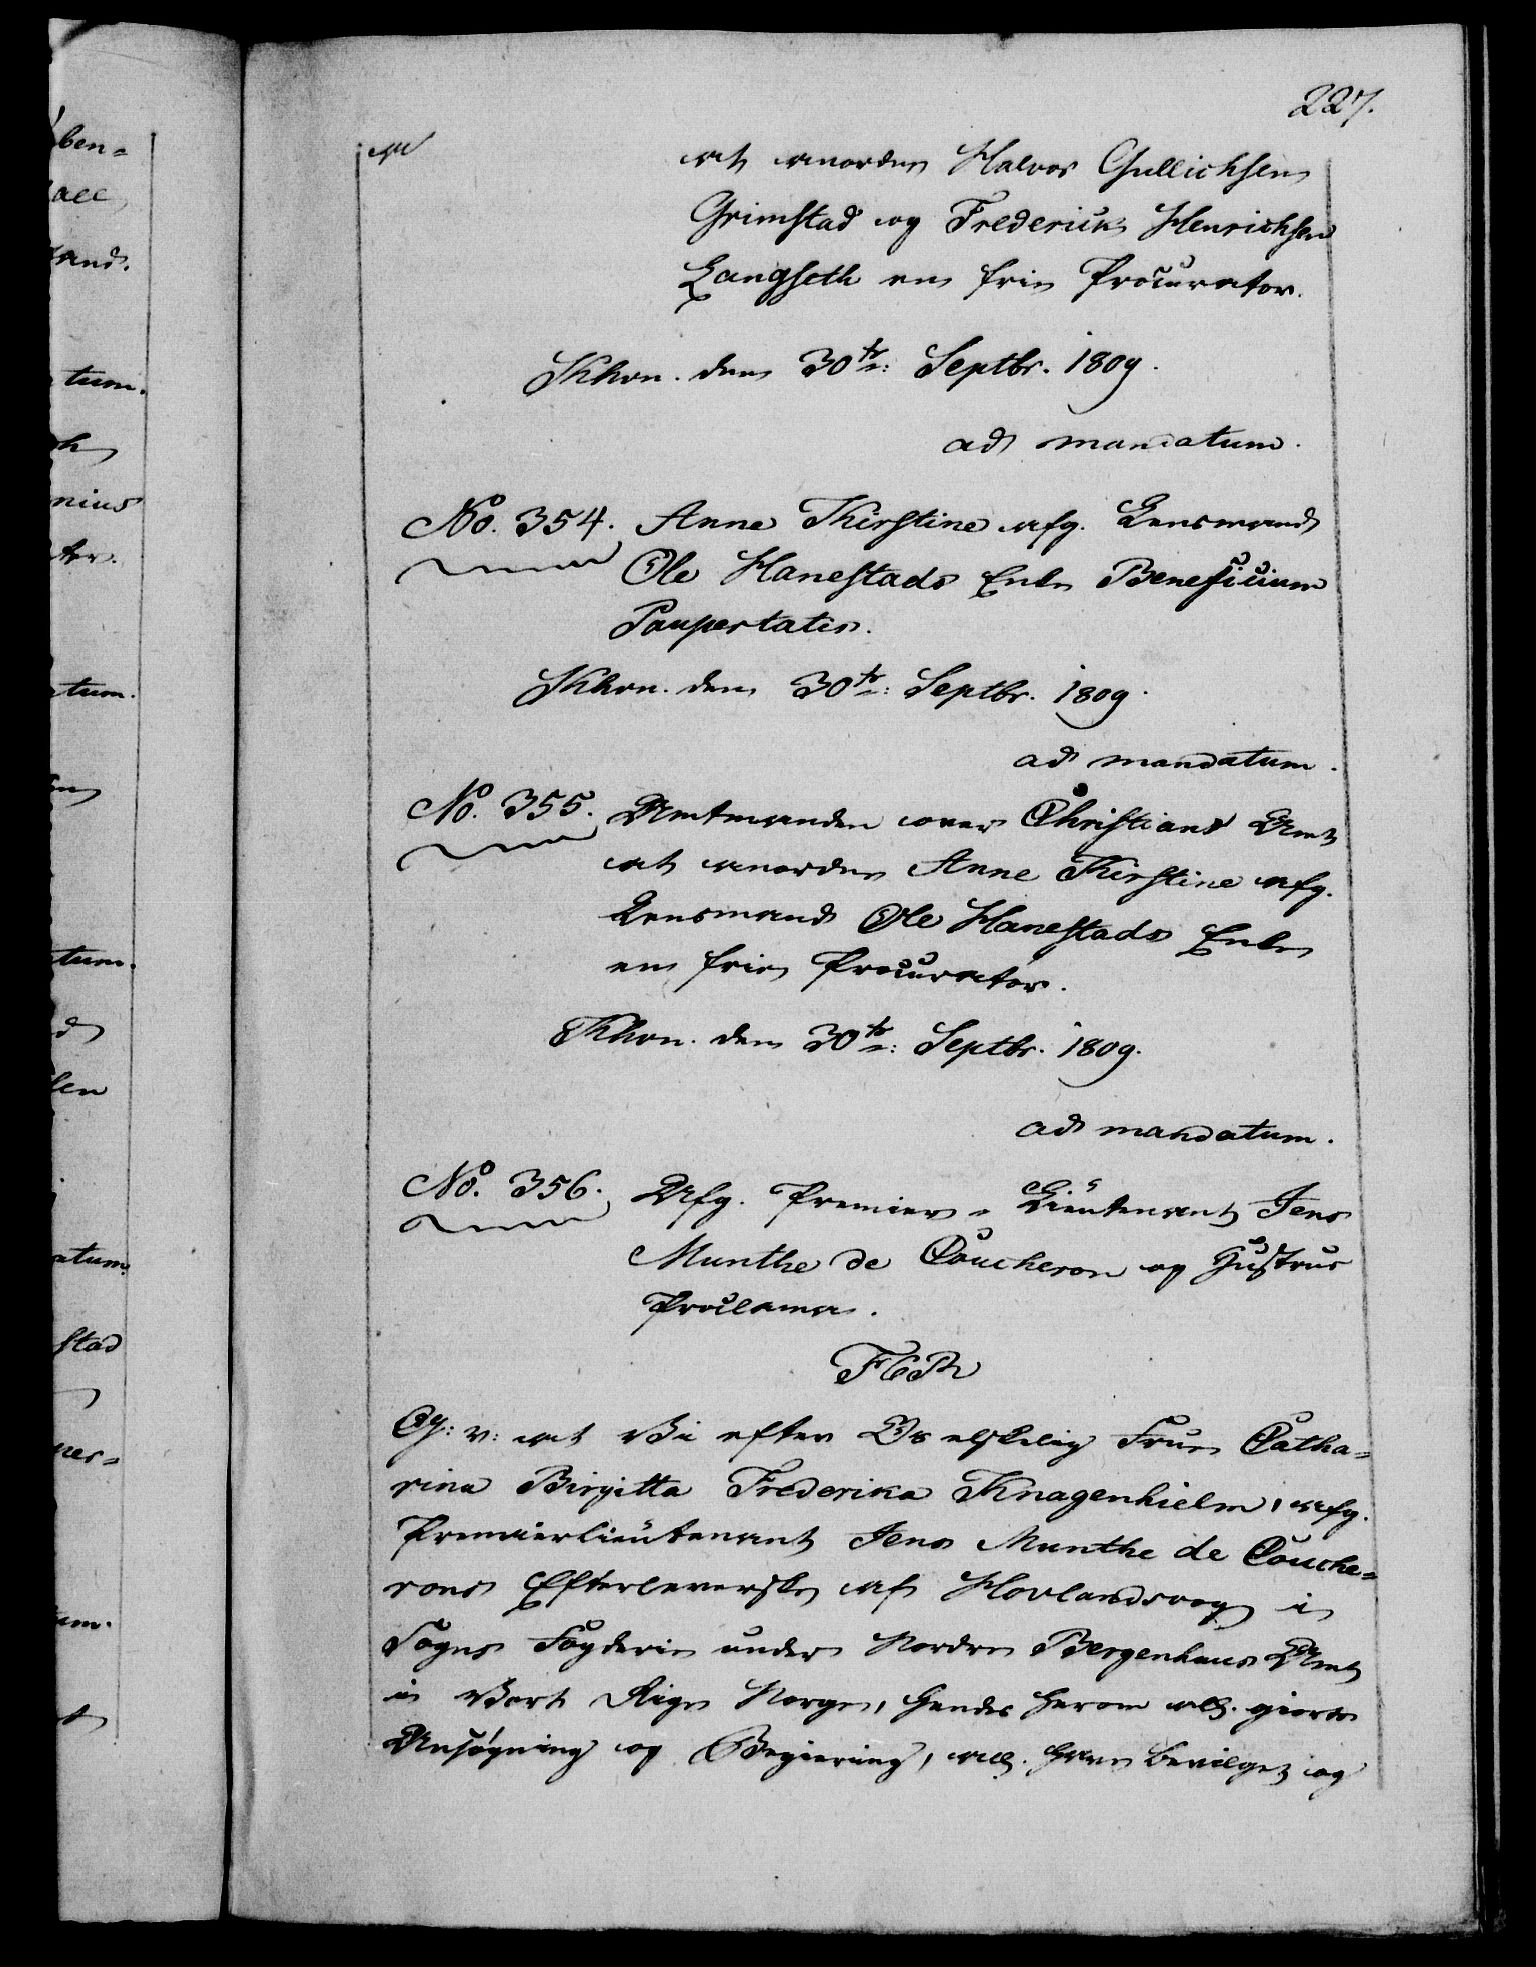 227.
at anordne Halvor Gullichsen
Grimstad og Frederick Henrichsen
Langseth en frie Procurator.
Khvn. den 30te: Septbr. 1809.
ad mandatum.
No. 354. Anne Kirstine afg. Lensmand
Ole Hanestads Enke Beneficium
Paupertatis.
Khvn. den 30te: Septbr. 1809.
ad mandatum.
No. 355. Amtmanden over Christians Amt
at anordne Anne Kirstine afg.
Lensmand Ole Hanestads Enke
en frie Procurator.
Khvn. den 30te: Septbr. 1809.
ad mandatum.
No. 356. Afg. Premier-Lieutenant Jens
Munthe de Coucheron og Hustrues
Proclama.
F6R
G: v: at Vi efter Os elskelig Frue Catha-
rina Birgitta Frederika Knagenhielm, afg.
Premierlieutenant Jens Munthe de Couche-
rons Efterleverske af Hovlandsvog i
Sogns Fogderie under Nordre Bergenhuus Amt
i Vort Rige Norge, hendes herom all. giorte
Ansøgning og Begiering, all. have bevilget og
ben-
all
tand.
tum.
nius
ter.
tum.
tum.
sen
atum.
stad
ner-
um.